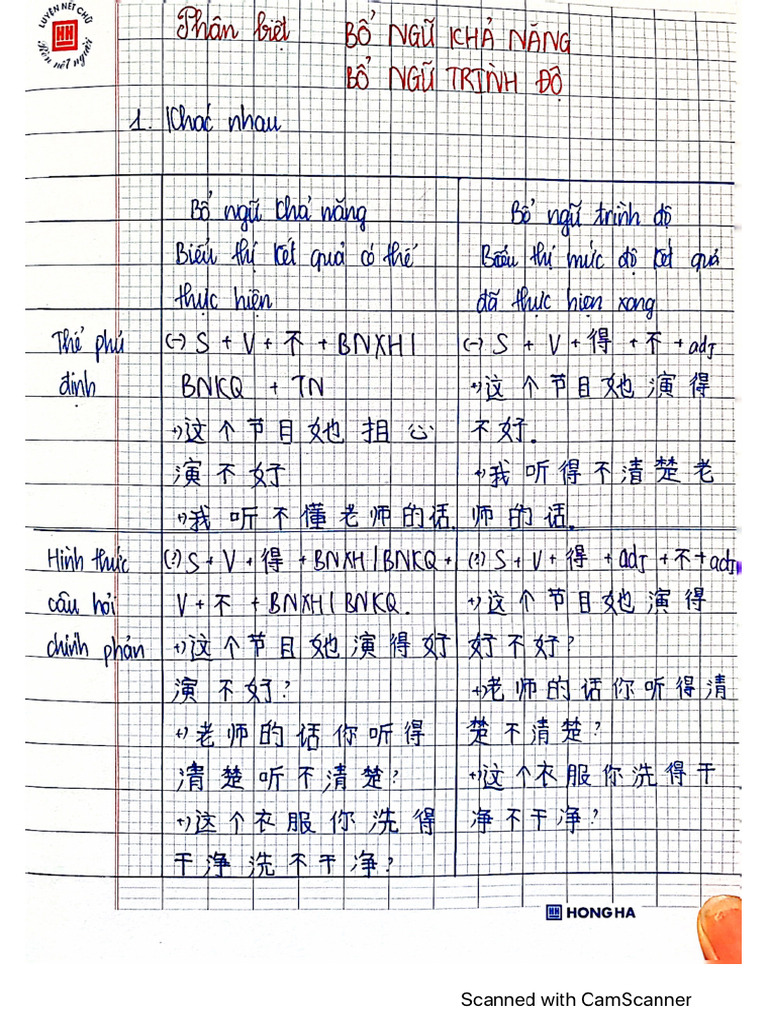 LUYỆN NÉT CHỮ
HH
Rèn nết người
Phân biệt BỔ NGỮ KHẢ NĂNG
BỔ NGỮ TRÌNH ĐỘ
1. Khác nhau
Bổ ngữ khả năng
Biểu thị kết quả có thể
thực hiện
Bổ ngữ trình độ
Biểu thị mức độ kết quả
đã thực hiện xong
Thể phủ
định
(-) S + V + 不 + BNXH /
BNKQ + TN
+) 这个节目她担心
演不好
+) 我听不懂老师的话.
(-) S + V + 得 + 不 + adj
+) 这个节目她演得
不好.
+) 我听得不清楚老
师的话.
Hình thức
câu hỏi
chính phản
(?) S + V + 得 + BNXH / BNKQ +
V + 不 + BNXH / BNKQ.
+) 这个节目她演得好
演不好?
+) 老师的话你听得
清楚听不清楚?
+) 这个衣服你洗得
干净洗不干净?
(?) S + V + 得 + adj + 不 + adj
+) 这个节目她演得
好不好?
+) 老师的话你听得清
楚不清楚?
+) 这个衣服你洗得干
净不干净?
HH HONG HA
Scanned with CamScanner